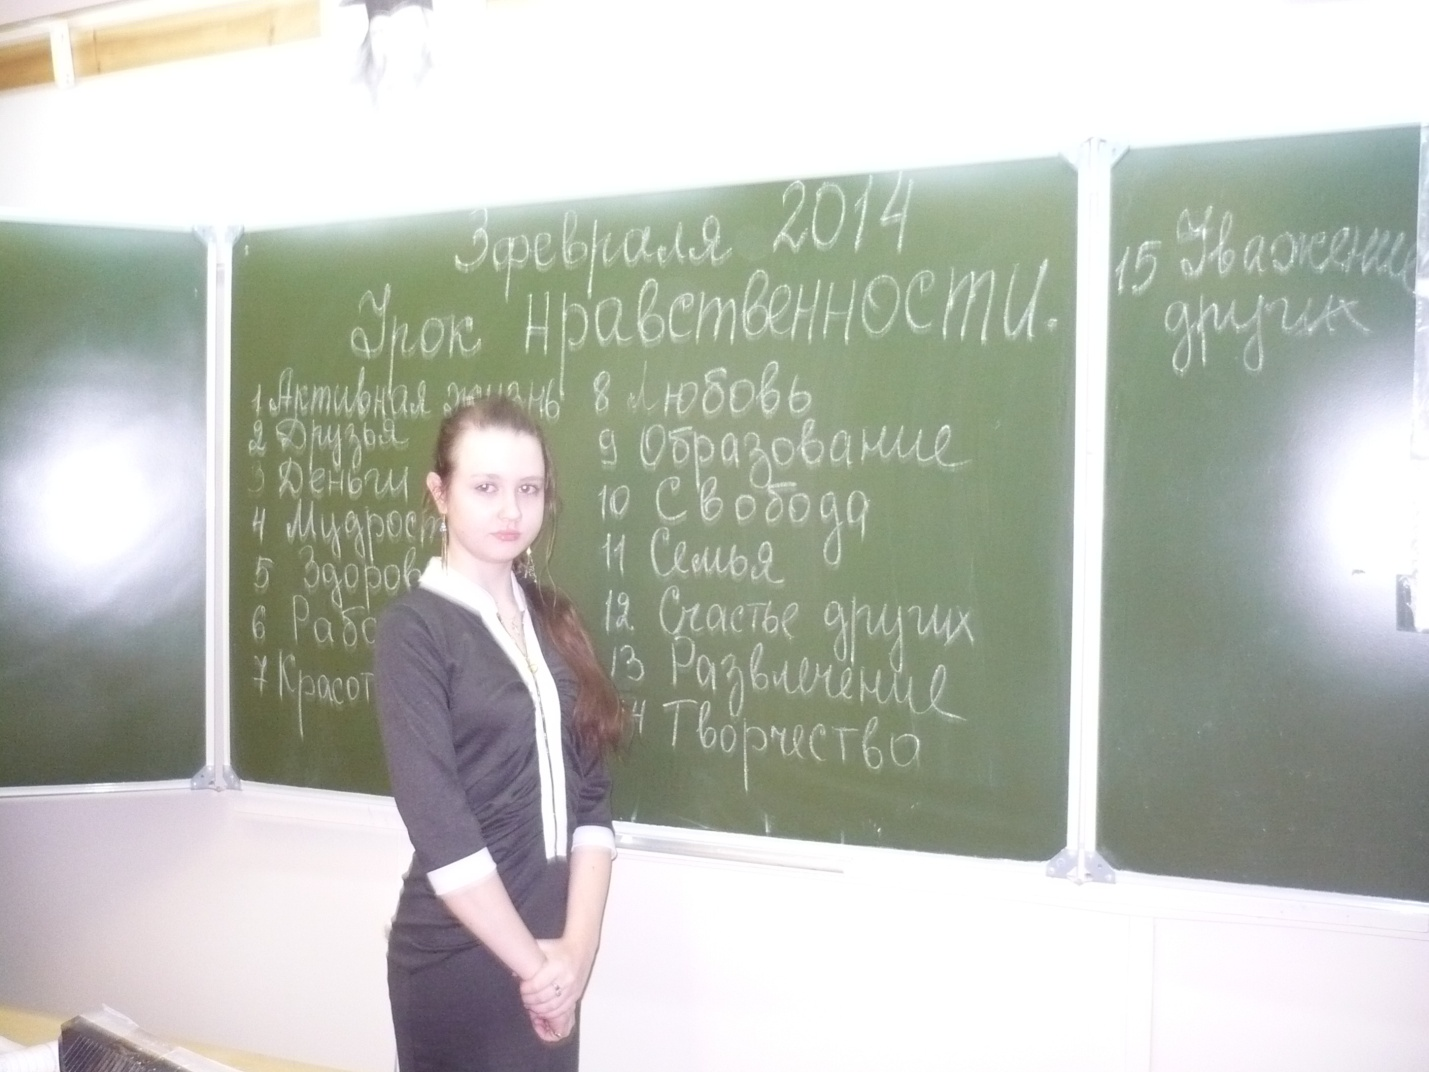 3 февраля 2014
Урок нравственности.
1 Активная жизнь
2 Друзья
3 Деньги
4 Мудрост
5 Здоров
6 Рабо
7 Красот
8 Любовь
9 Образование
10 Свобода
11 Семья
12 Счастье других
13 Развлечение
14 Творчество
15 Уважение
других